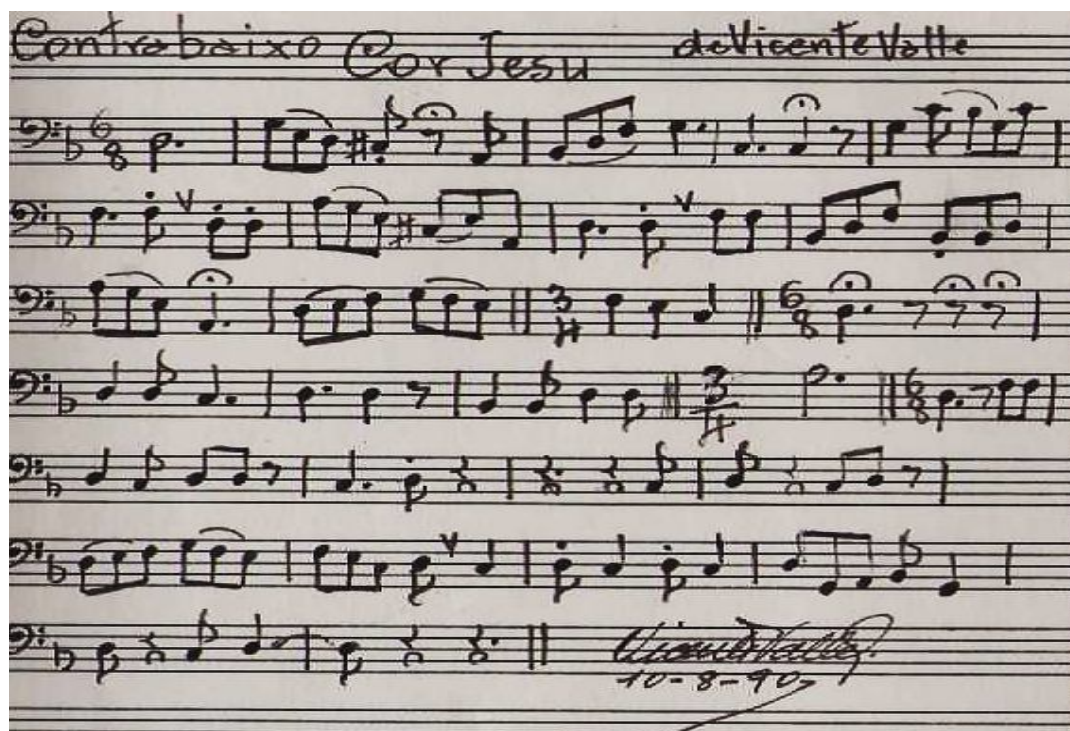 Contrabaixo Cor Jesu de Vicente Valle
6 8
3 4 6 8
3 4 6 8
Vicente Valle
10-8-90